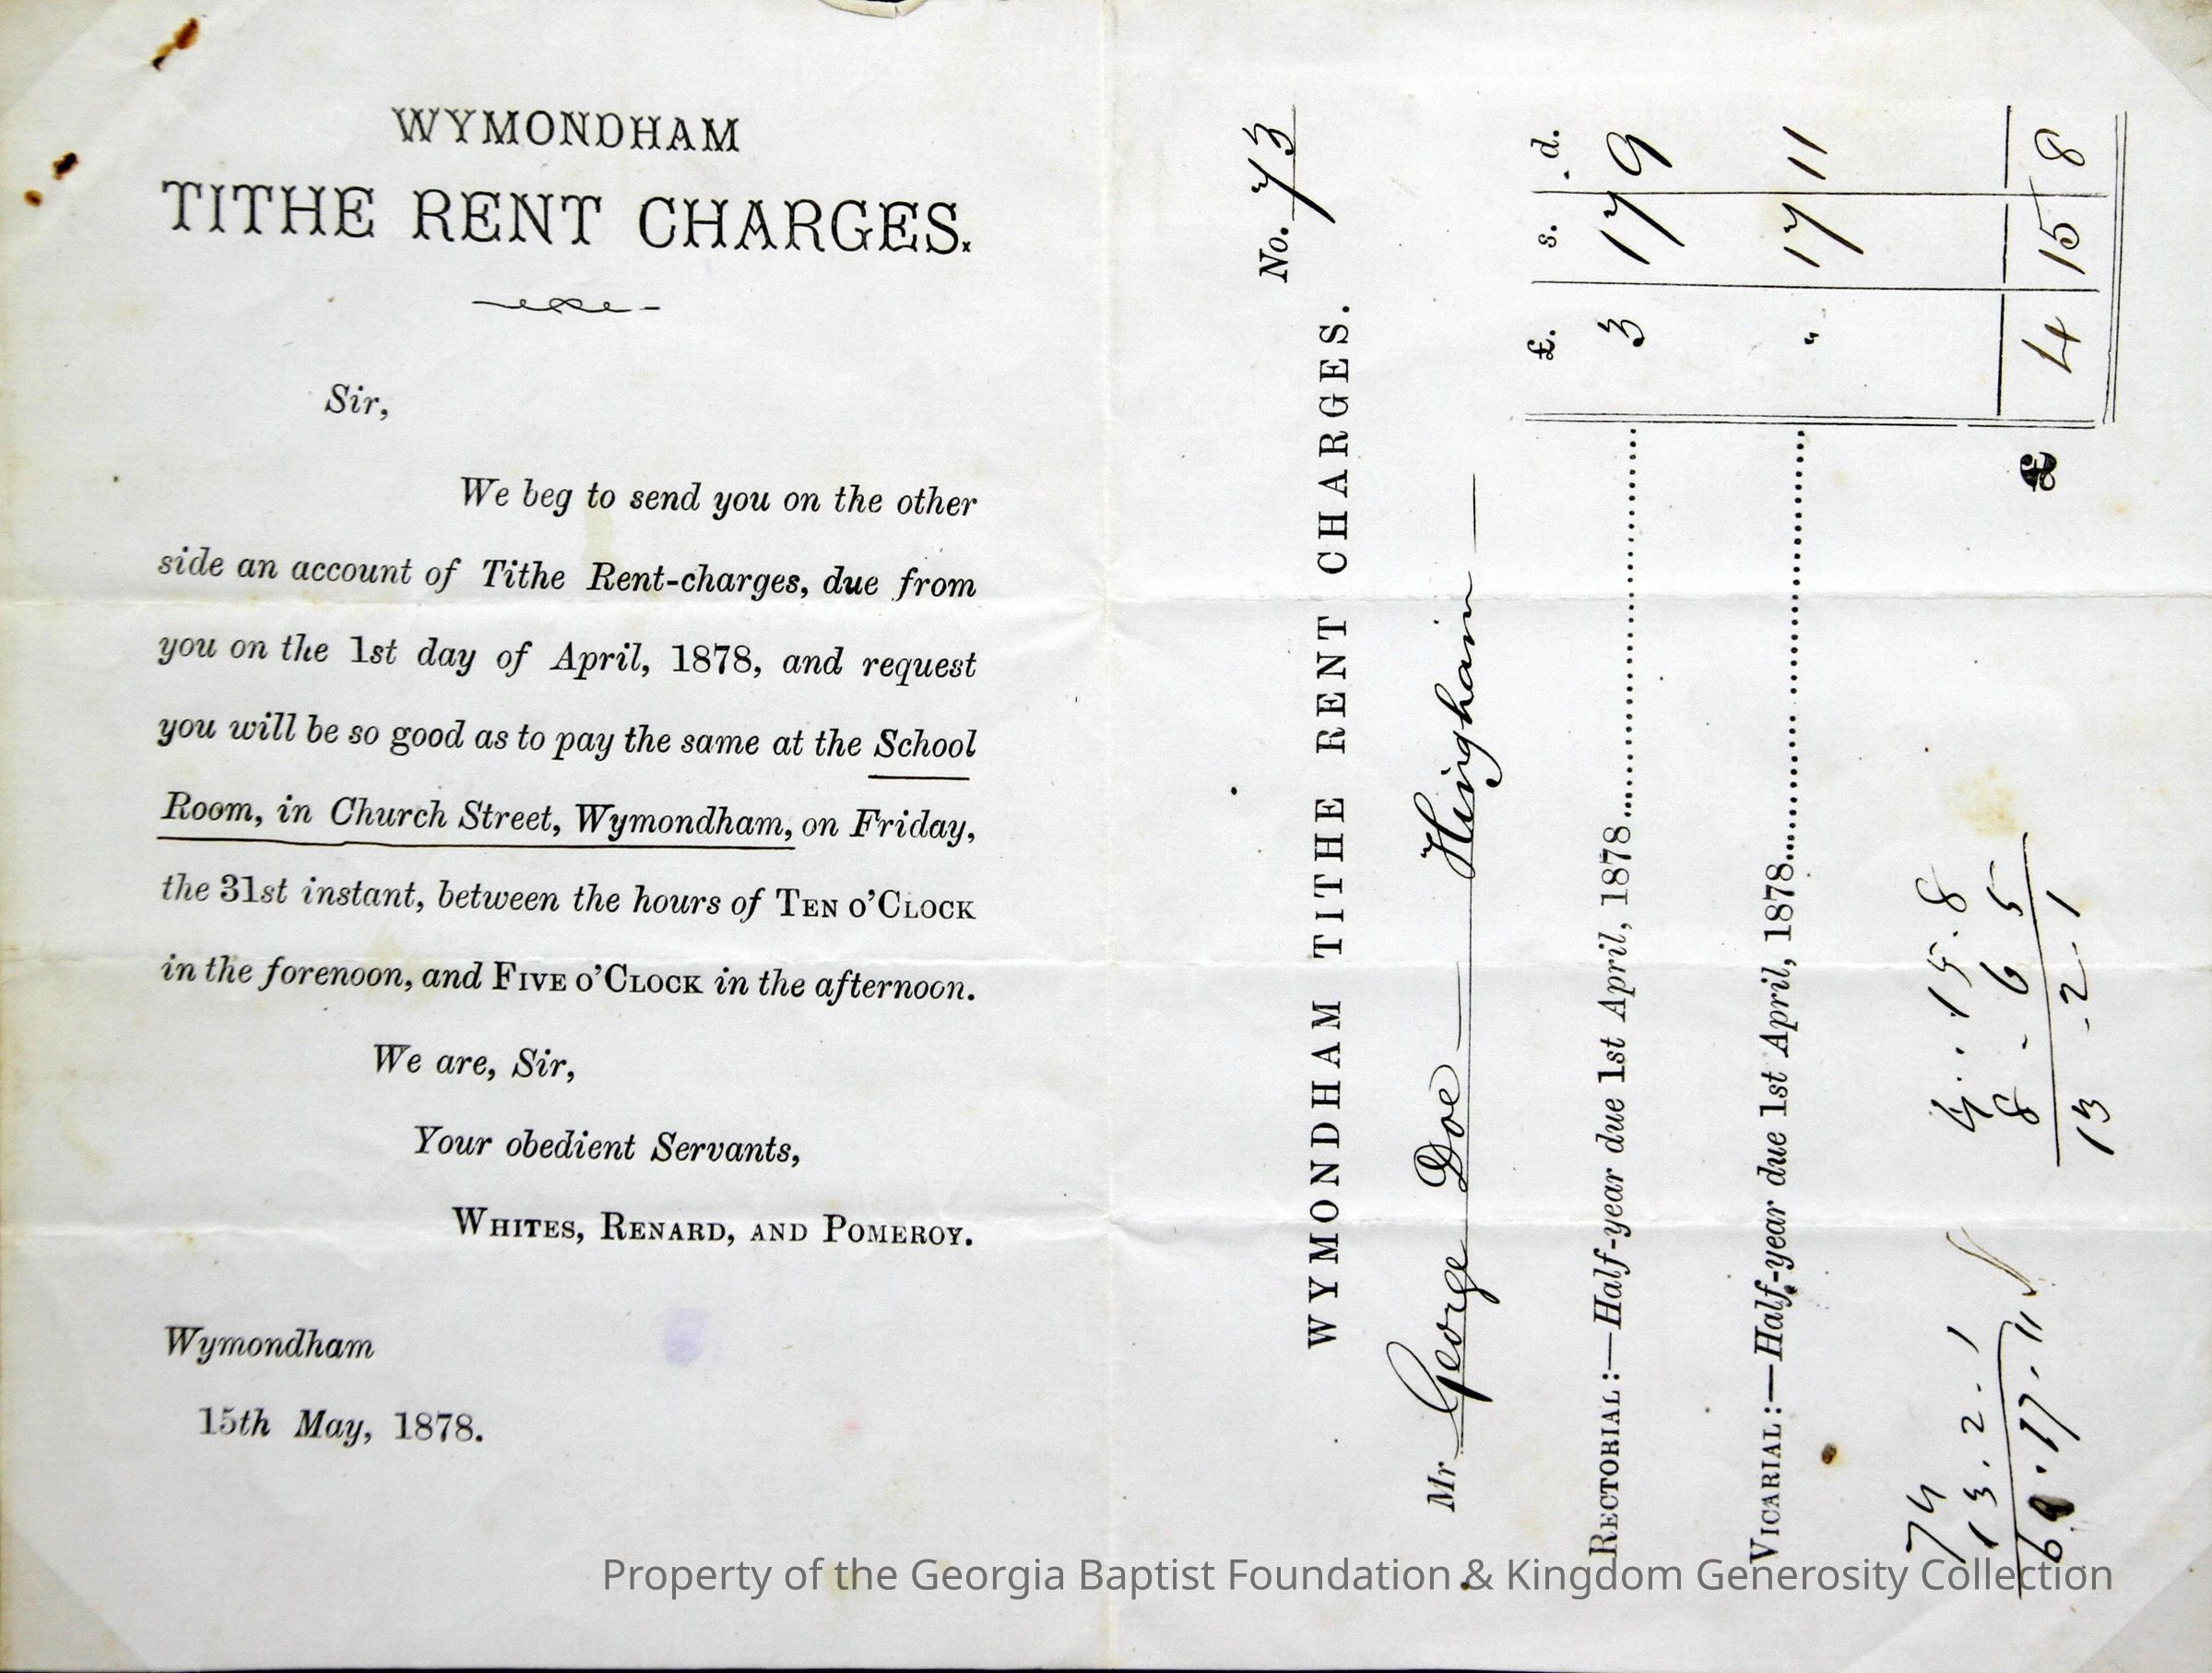 WYMONDHAM
TITHE RENT CHARGES.
Sir,
We beg to send you on the other
side an account of Tithe Rent-charges, due from
you on the 1st day of April, 1878, and request
you will be so good as to pay the same at the School
Room, in Church Street, Wymondham, on Friday,
the 31st instant, between the hours of TEN O'CLOCK
in the forenoon, and FIVE O'CLOCK in the afternoon.
We are, Sir,
Your obedient Servants,
WHITES, RENARD, AND POMEROY.
Wymondham
15th May, 1878.
No. 73
WYMONDHAM TITHE RENT CHARGES.
Mr George Doe — Hingham —
£. s. d.
RECTORIAL:—Half-year due 1st April, 1878 3 17 9
VICARIAL:—Half-year due 1st April, 1878 " 17 11
£ 4 15 8
4 . 15 . 8
8 - 6 5
13 - 2 - 1
74
13 . 2 . 1
17 . 11
Property of the Georgia Baptist Foundation & Kingdom Generosity Collection